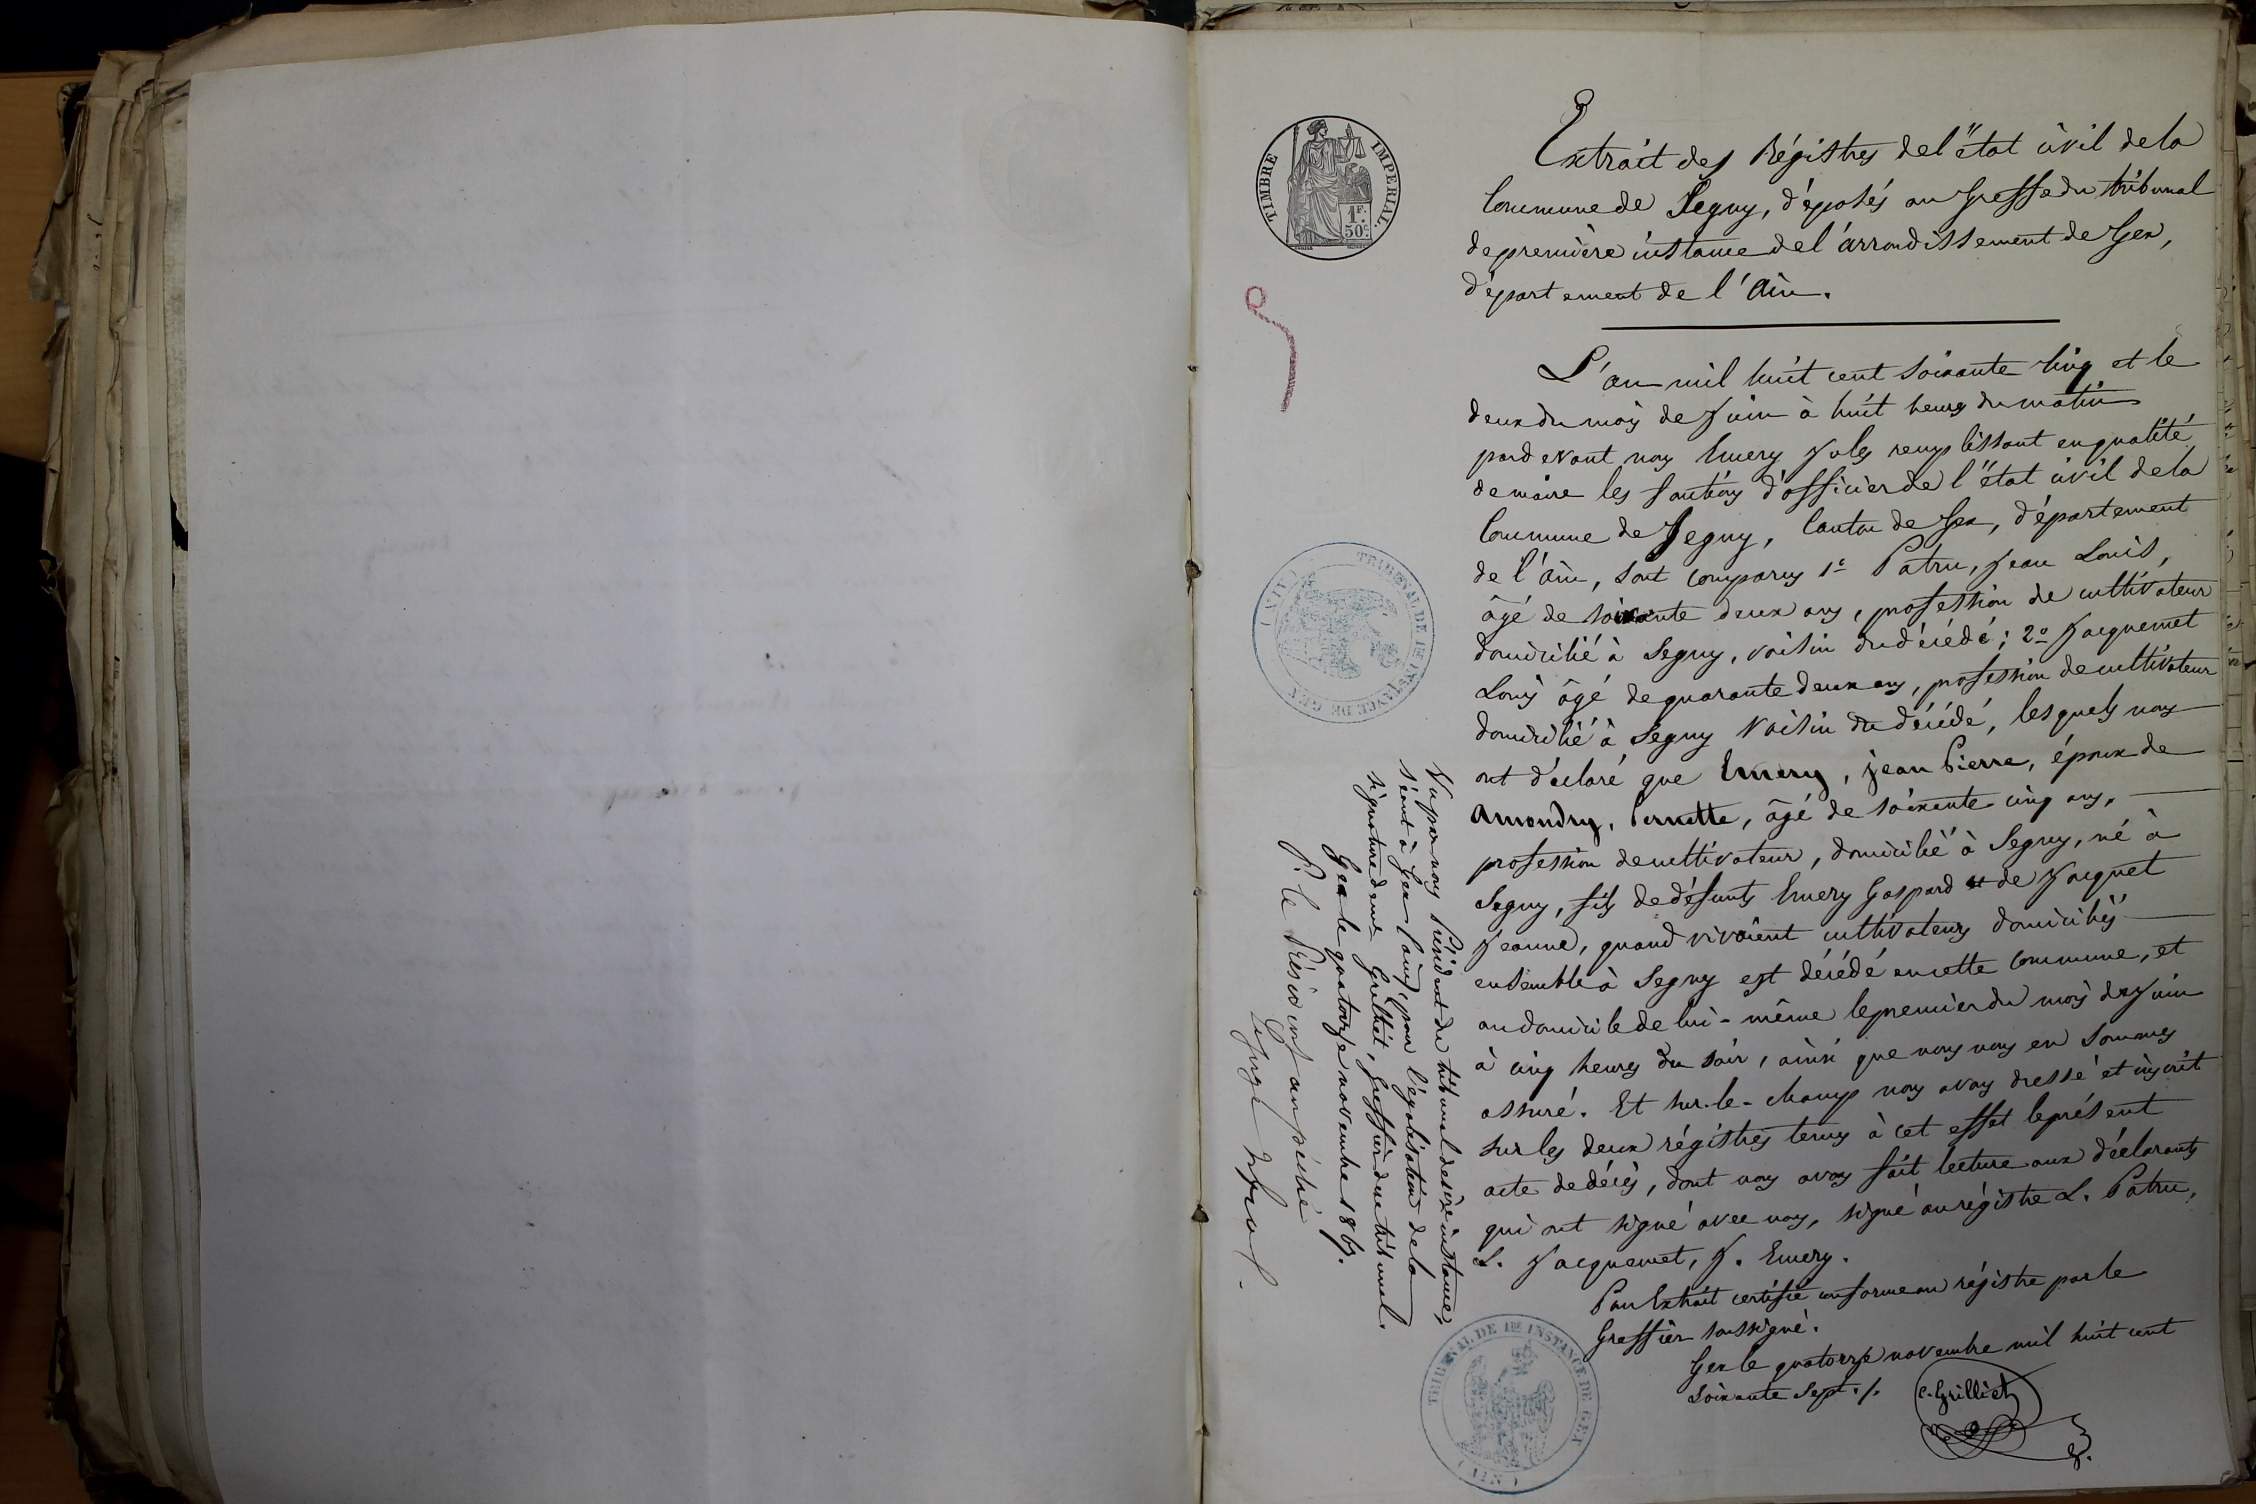 TIMBRE IMPERIAL.
1F.
50c.
Extrait des Régistres de l'état civil de la
Commune de Segny, déposés au Greffe du tribunal
de première instance de l'arrondissement de Gex,
département de l'Ain.
L'an mil huit cent soixante cinq et le
deux du mois de Juin à huit heures du matin
pardevant nous Emery Jules remplissant en qualité
de maire les fonctions d'officier de l'état civil de la
Commune de Segny, Canton de Gex, département
de l'Ain, sont comparus 1° Patru, Jean Louis,
âgé de soixante deux ans, profession de cultivateur
domicilié à Segny, voisin du décédé; 2° Jacquemet
Louis âgé de quarante deux ans, profession de cultivateur
domicilié à Segny voisin du décédé, lesquels nous
ont déclaré que Emery, jean Pierre, époux de
Amondry, Pernette, âgé de soixante cinq ans,
profession de cultivateur, domicilié à Segny, né à
Segny, fils de défunts Emery Gaspard et de Jacquet
Jeanne, quand vivaient cultivateurs domiciliés
ensemble à Segny est décédé en cette Commune, et
au domicile de lui-même le premier du mois de Juin
à cinq heures du soir, ainsi que nous nous en sommes
assuré. Et sur-le-champ nous avons dressé et inscrit
sur les deux régistres tenus à cet effet le présent
acte de décès, dont nous avons fait lecture aux déclarants
qui ont signé avec nous, signé au régistre L. Patru,
L. Jacquemet, J. Emery.
Pour Extrait certifié conforme au régistre par le
Greffier soussigné.
Gex le quatorze novembre mil huit cent
soixante sept./.
C. Grilliet
Vu par nous Président du tribunal de 1ère instance,
séant à Gex (ain), pour légalisation de la
signature de Mr Grilliet, Greffier du tribunal.
Gex le quatorze novembre 1867.
P. le Président empêché
TRIBUNAL DE 1RE INSTANCE DE GEX
(AIN)
TRIBUNAL DE 1RE INSTANCE DE GEX
(AIN)